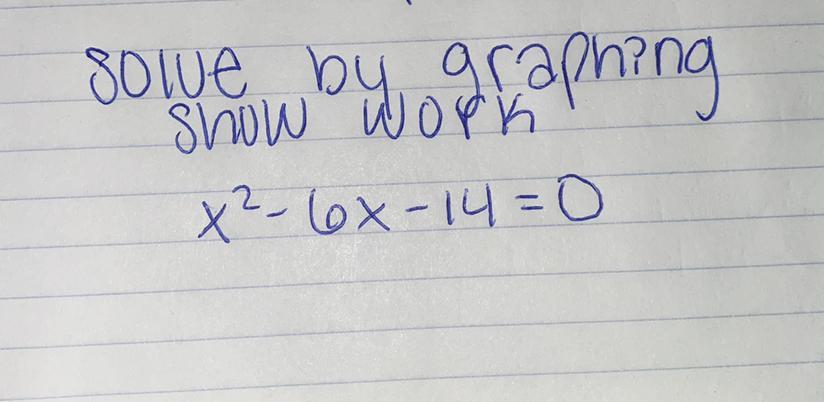 solve by graphing
show work
x² - 6x - 14 = 0